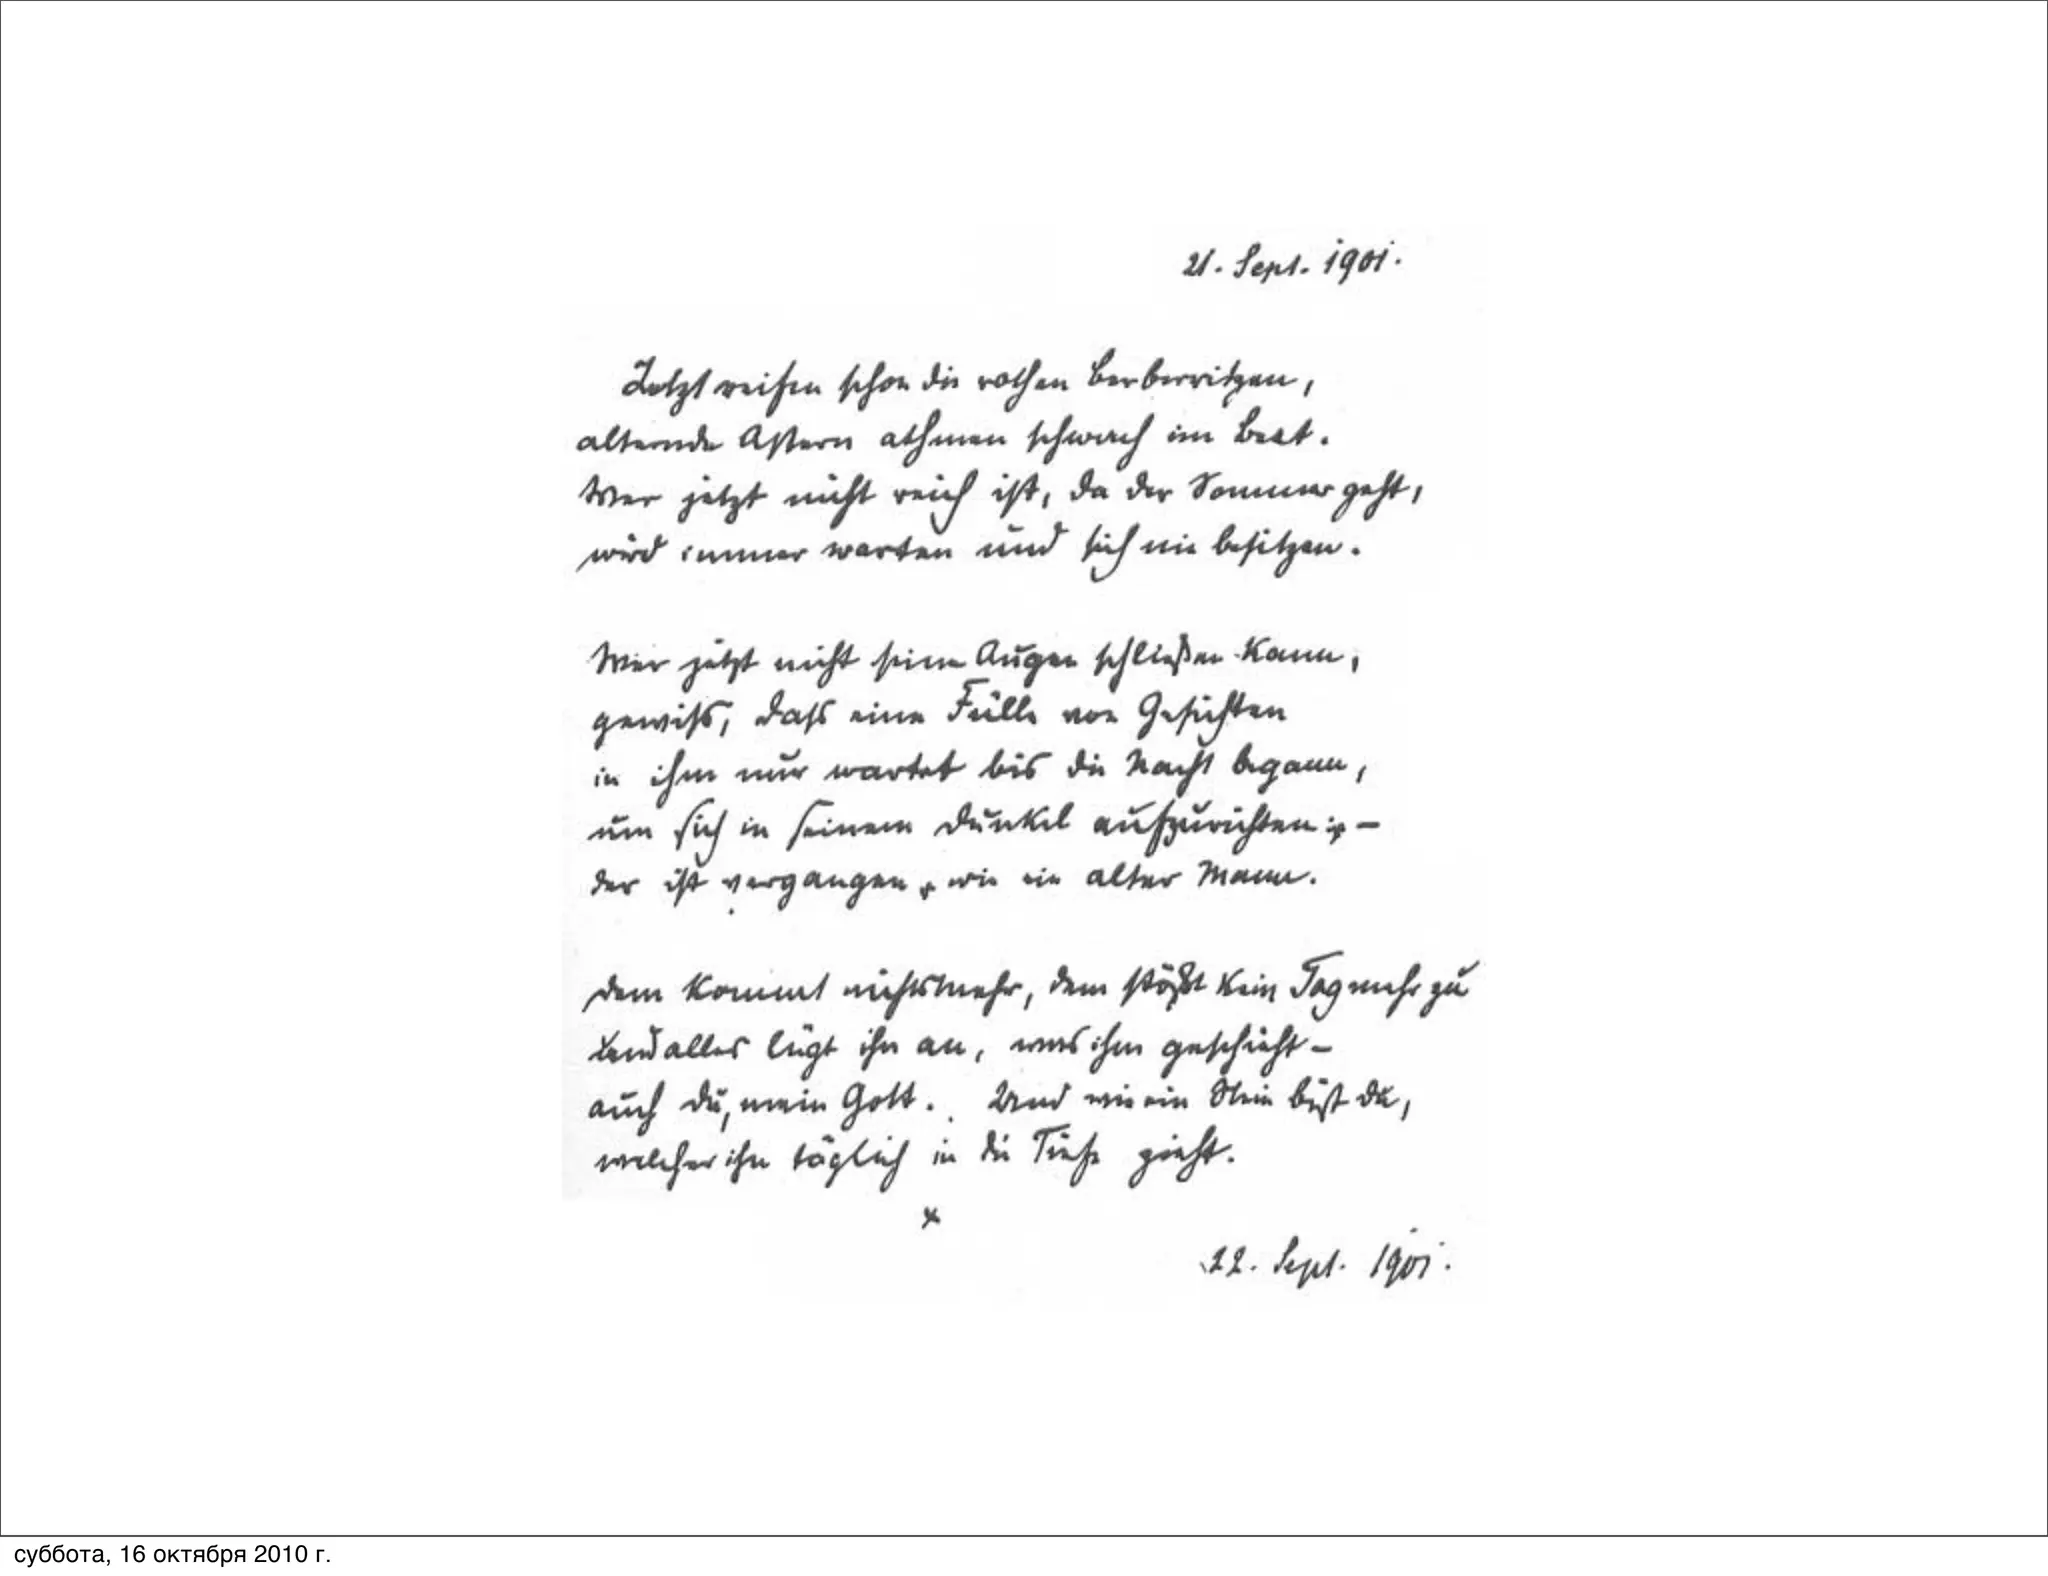 21. Sept. 1901.
Jetzt reifen schon die rothen Berberritzen,
alternde Astern athmen schwach im Beet.
Wer jetzt nicht reich ist, da der Sommer geht,
wird immer warten und sich nie besitzen.
Wer jetzt nicht seine Augen schließen kann,
gewiß, daß eine Fülle von Gesichten
in ihm nur wartet bis die Nacht begann,
um sich in seinem Dunkel aufzurichten: –
der ist vergangen, wie ein alter Mann.
Dem kommt nichts mehr, dem stößt kein Tag mehr zu
Und alles lügt ihn an, was ihm geschieht –
auch du, mein Gott. Und wie ein Stein bist du,
welcher ihn täglich in die Tiefe zieht.
x
22. Sept. 1901.
суббота, 16 октября 2010 г.